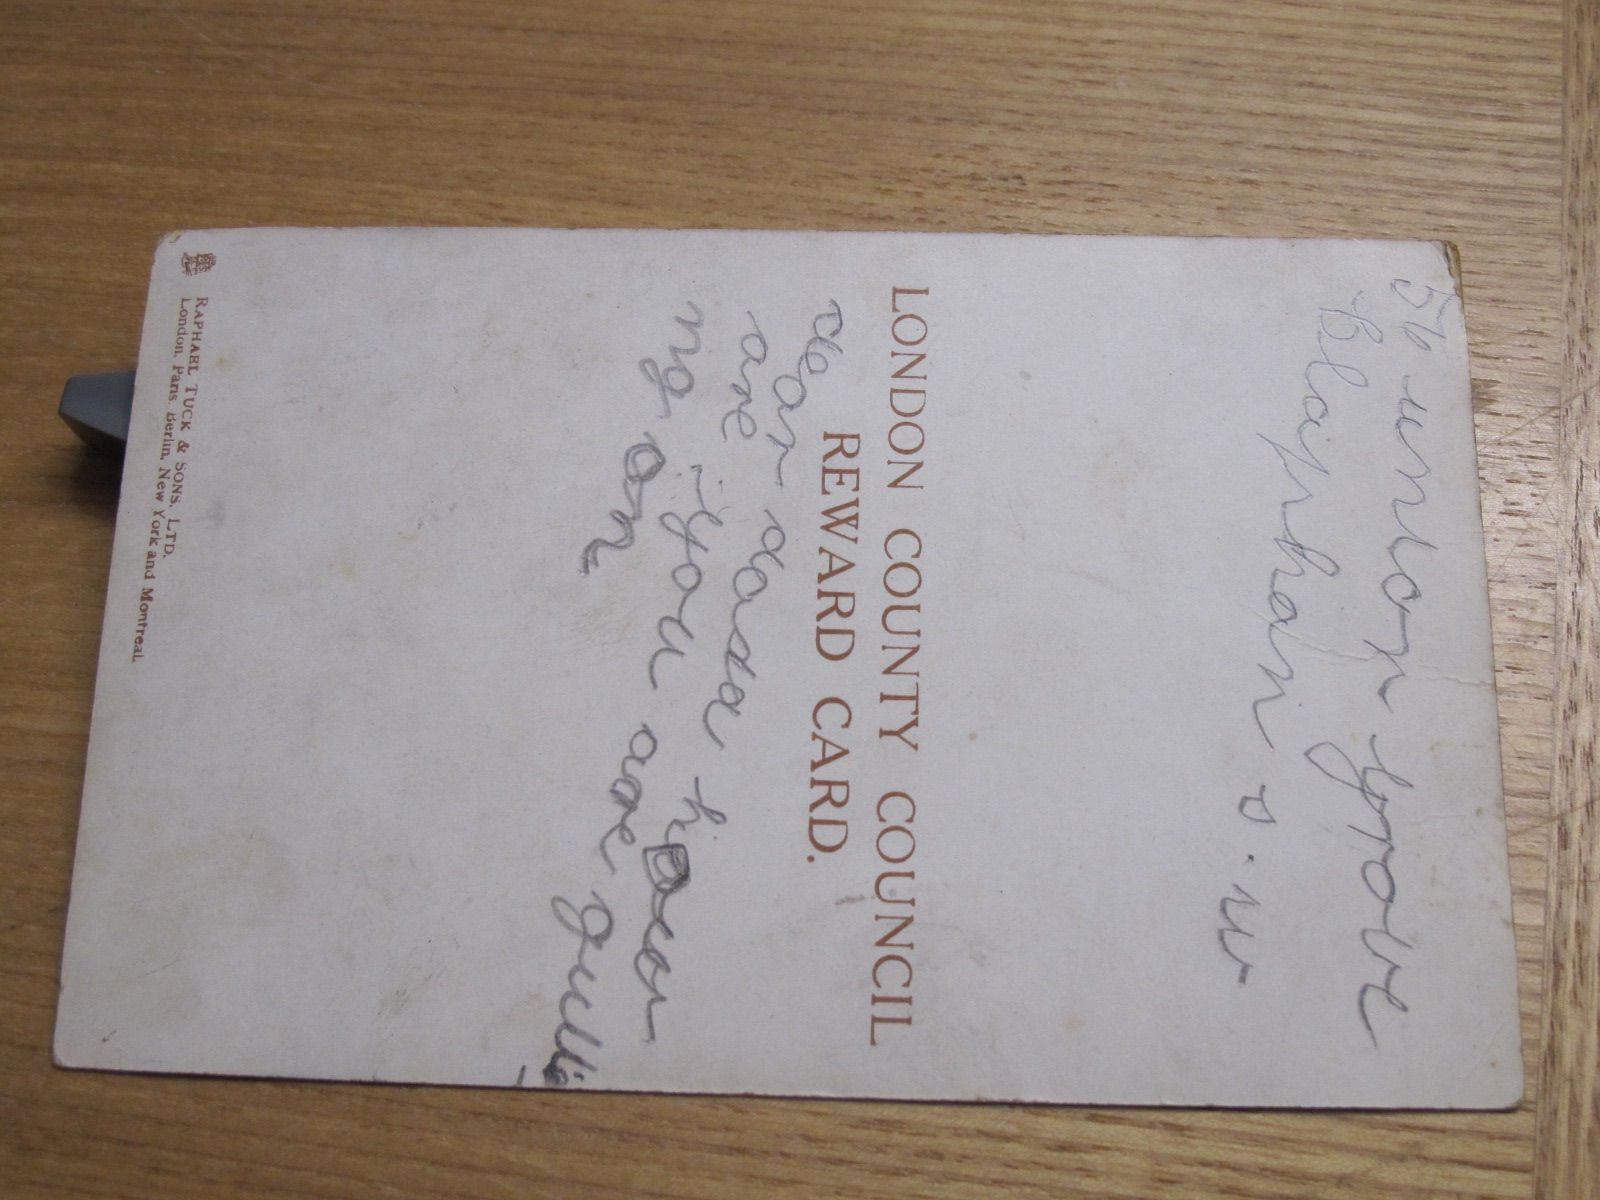 union Grove
Clapham s.w
LONDON COUNTY COUNCIL
REWARD CARD.
dear dada
are you are
ng on
RAPHAEL TUCK & SONS, LTD.
London, Paris, Berlin, New York and Montreal.